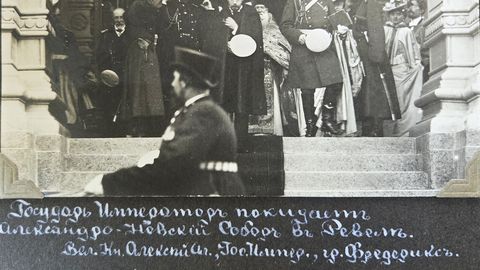 Государь Императоръ покидаетъ
Александро-Невскій Соборъ въ Ревелѣ.
Вел. Кн. Алексѣй Ал., Гос. Импер., гр. Фредериксъ.